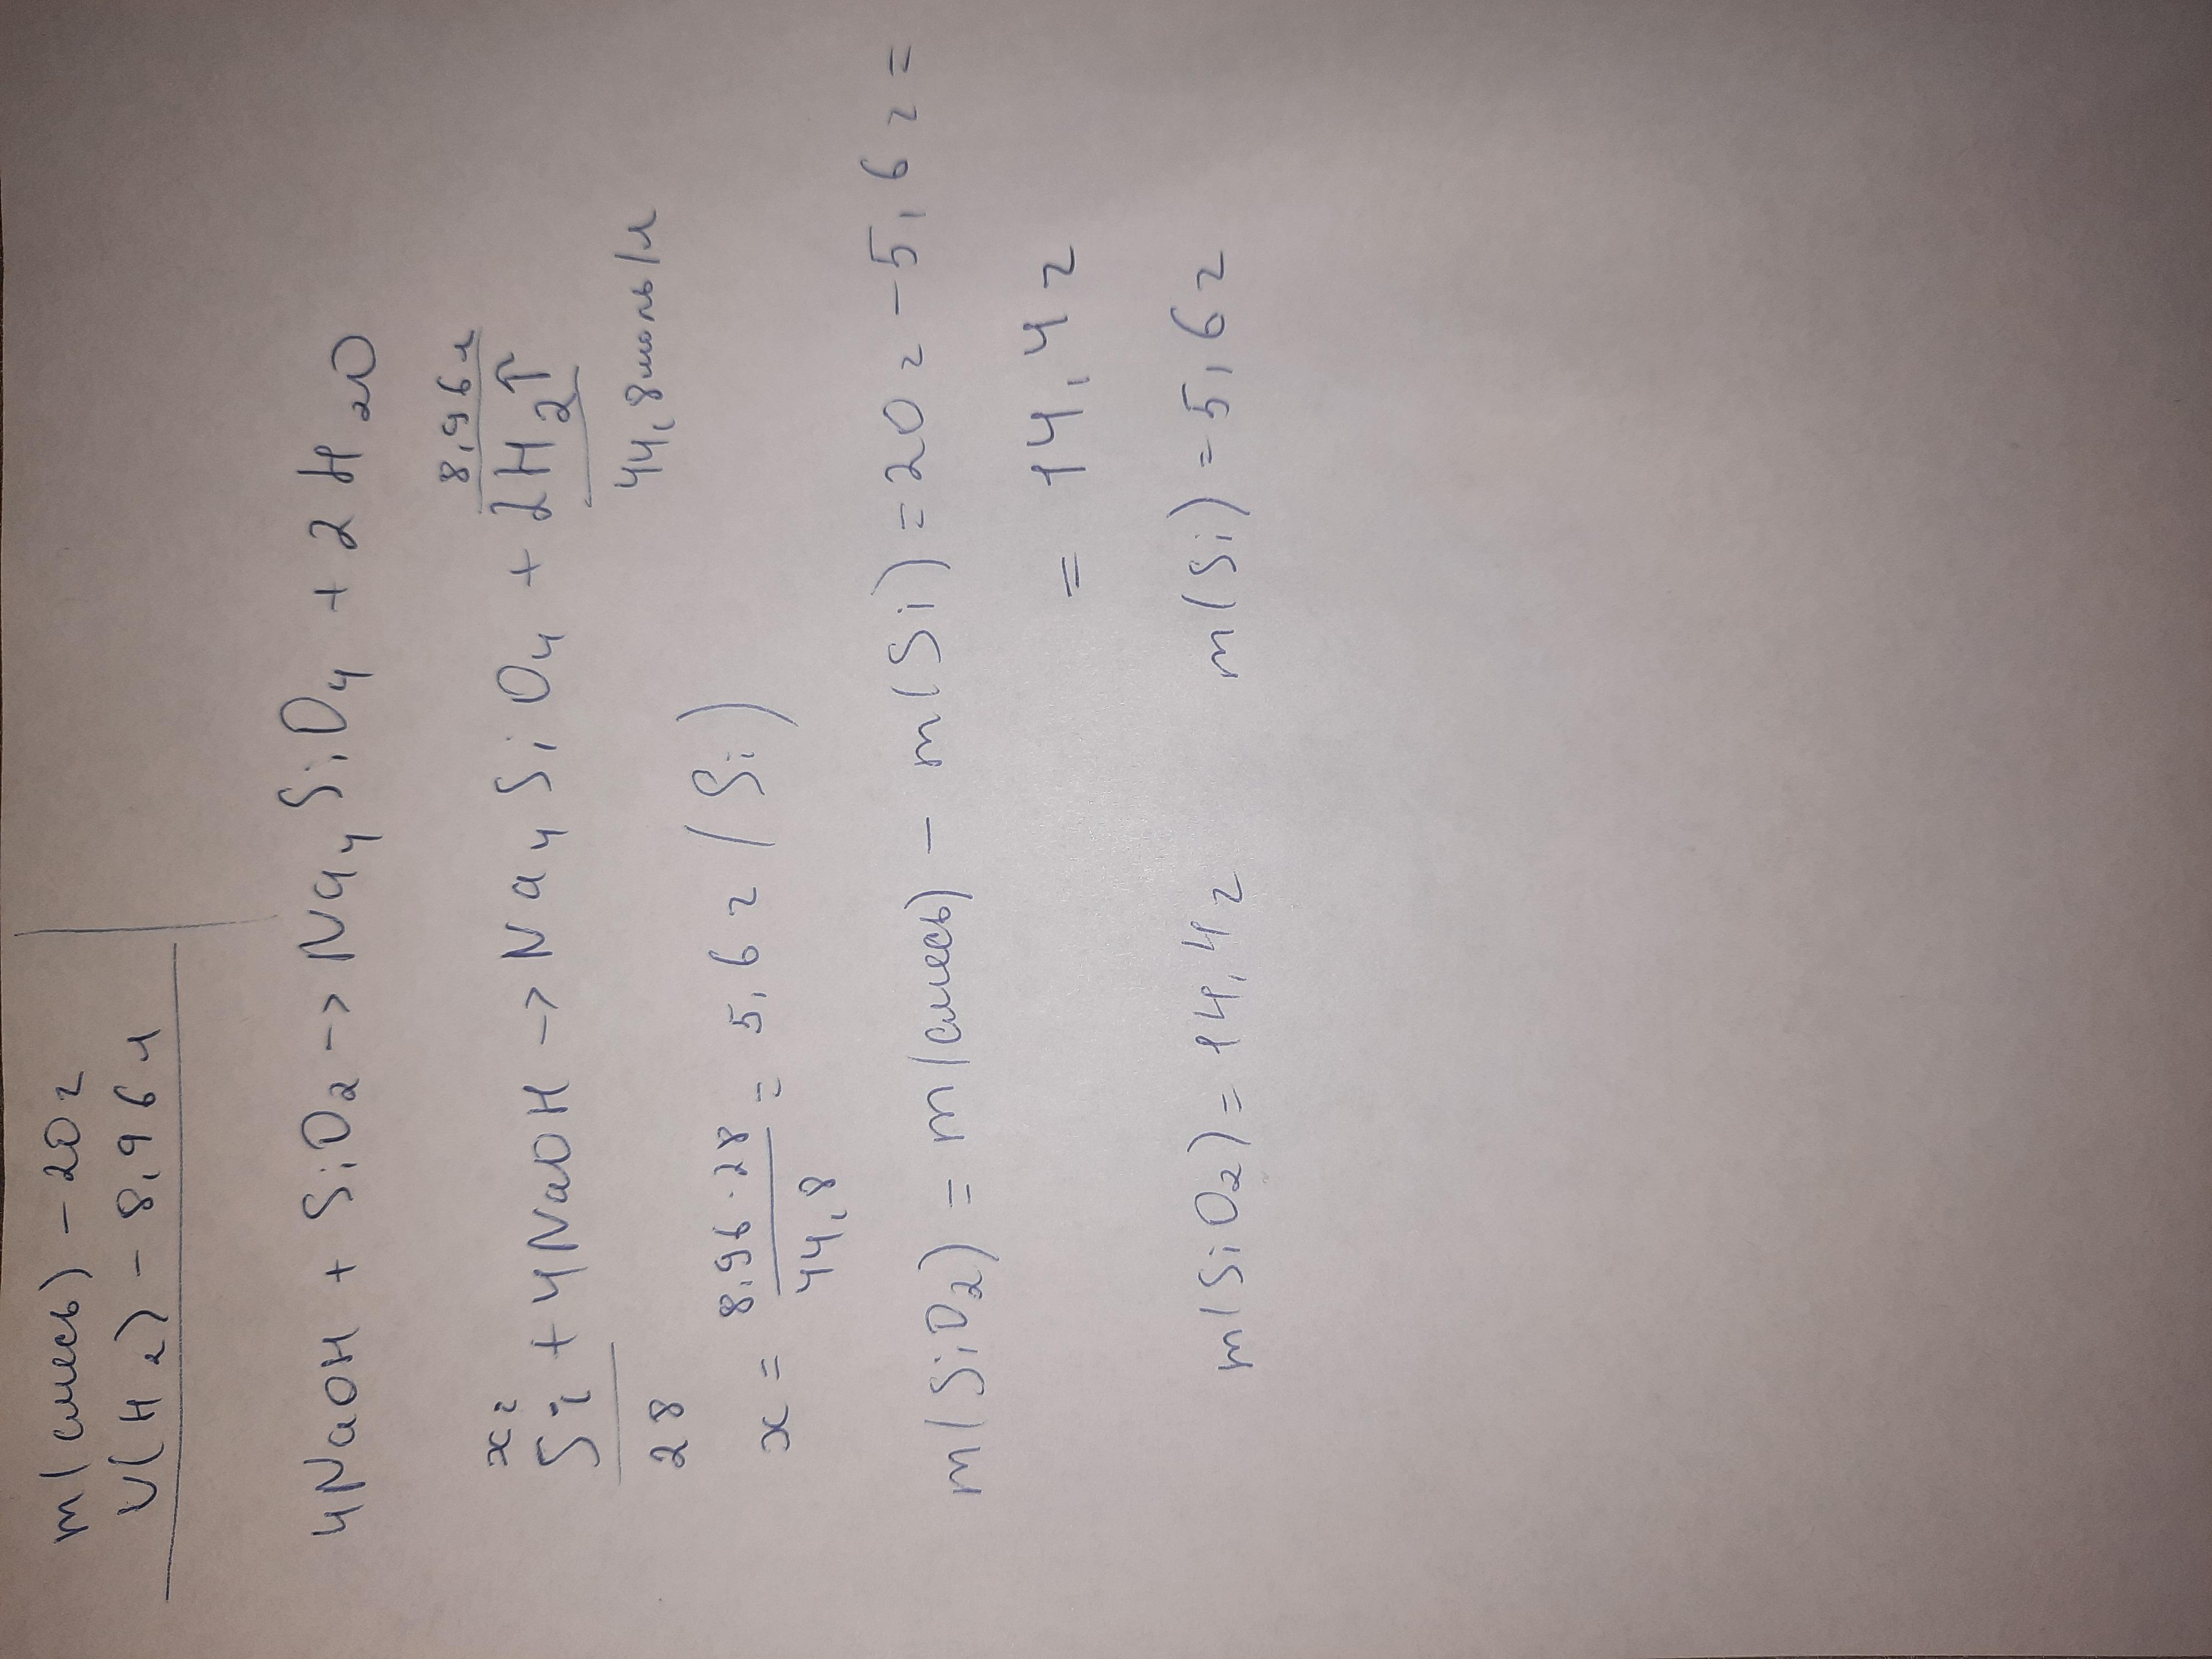 m(смесь) - 20г
V(H2) - 8,96л
4NaOH + SiO2 -> Na4SiO4 + 2H2O
xг 8,96л
Si + 4NaOH -> Na4SiO4 + 2H2↑
28 44,8моль/л
x = 8,96·28/44,8 = 5,6г (Si)
m(SiO2) = m(смесь) - m(Si) = 20г - 5,6г =
= 14,4г
m(SiO2) = 14,4г m(Si) = 5,6г